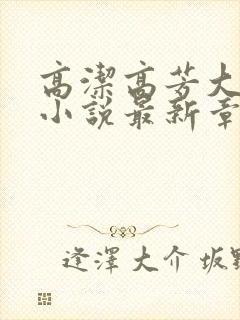 高潔高芳大
小說最新章
逢澤大介坂野